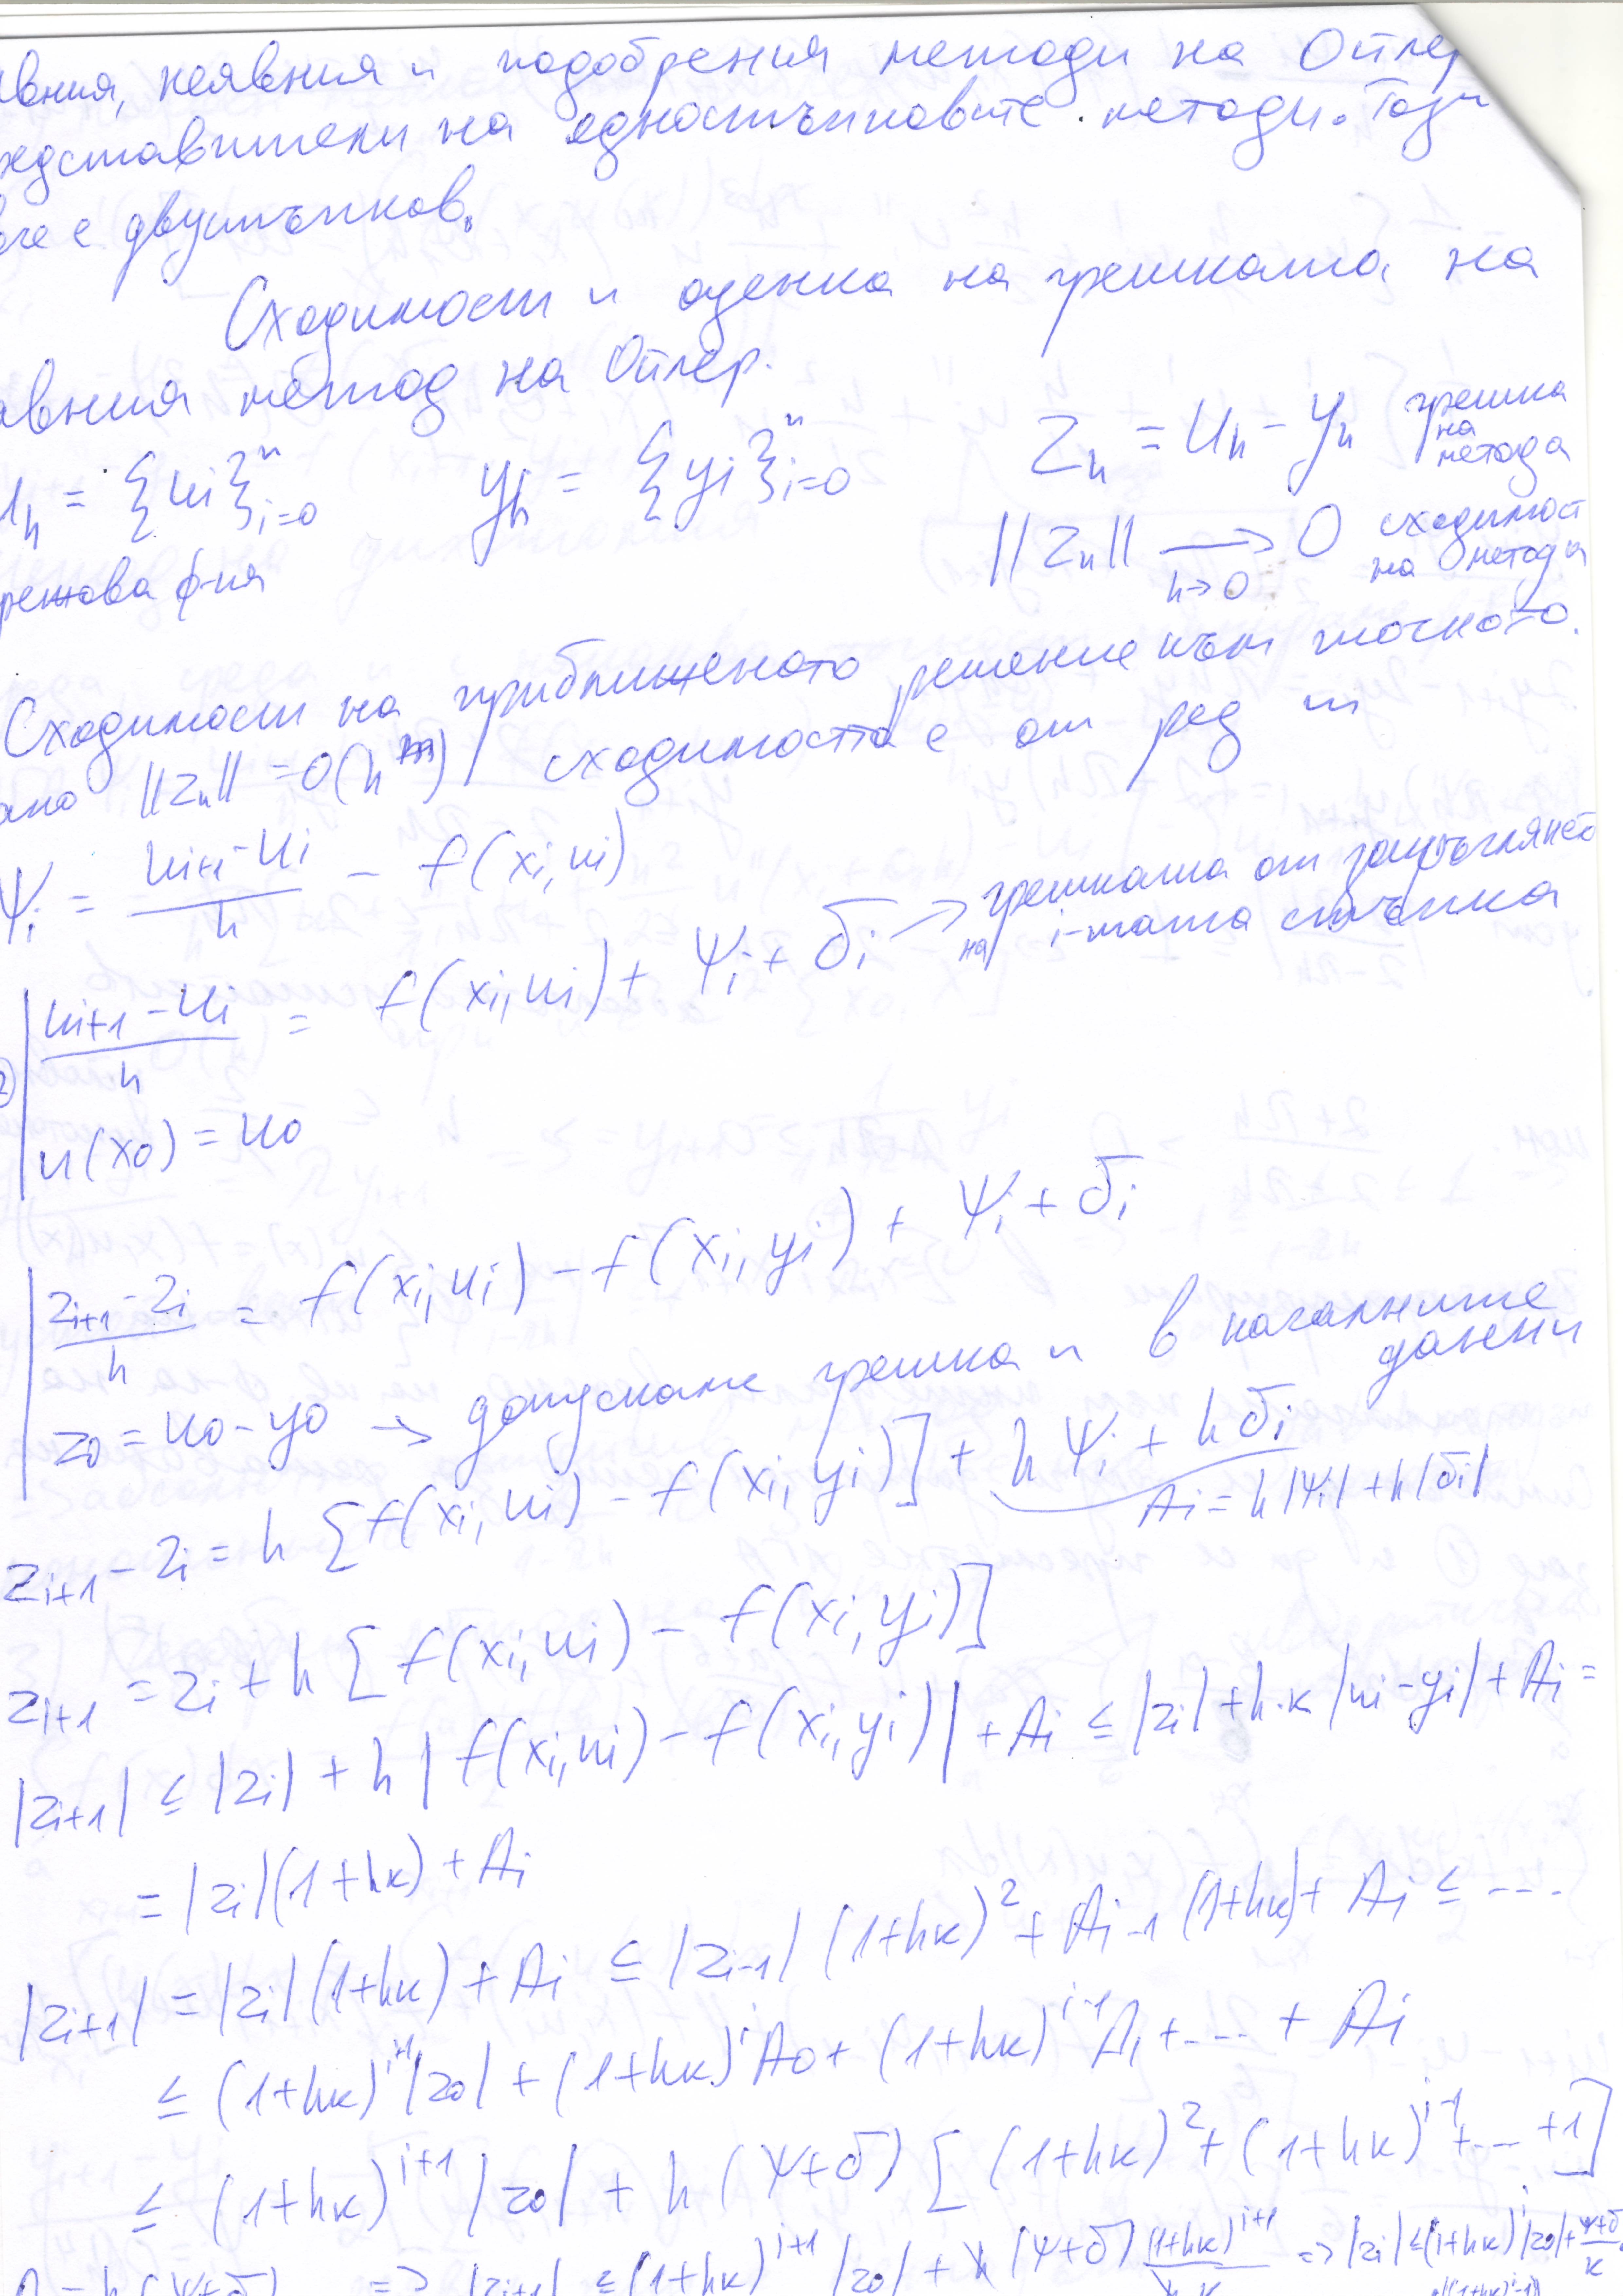 явния, неявния и подобрения методи на Ойлер
представители на едностъпковите методи. Този
вече е двустъпков.
Сходимост и оценка на грешката на
явния метод на Ойлер.
u_h = {u_i}^n_{i=0} y_h = {y_i}^n_{i=0} Z_h = u_h - y_h грешка на метода
мрежова ф-ия ||Z_h|| → 0 h→0 сходимост на метода
Сходимост на приближеното решение към точното.
ако ||Z_h|| = O(h^m) сходимостта е от ред m
Ψ_i = (u_{i+1} - u_i)/h - f(x_i, u_i)
(u_{i+1} - u_i)/h = f(x_i, u_i) + Ψ_i + δ_i → грешката от закръглянето на i-тата стъпка
② u(x_0) = u_0
(z_{i+1} - z_i)/h = f(x_i, u_i) - f(x_i, y_i) + Ψ_i + δ_i
z_0 = u_0 - y_0 → допускаме грешка и в началните данни
z_{i+1} - z_i = h [f(x_i, u_i) - f(x_i, y_i)] + hΨ_i + hδ_i
A_i = h|Ψ_i| + h|δ_i|
z_{i+1} = z_i + h [f(x_i, u_i) - f(x_i, y_i)]
|z_{i+1}| ≤ |z_i| + h |f(x_i, u_i) - f(x_i, y_i)| + A_i ≤ |z_i| + h.к |u_i - y_i| + A_i =
= |z_i|(1+hк) + A_i
|z_{i+1}| = |z_i|(1+hк) + A_i ≤ |z_{i-1}| (1+hк)^2 + A_{i-1} (1+hк) + A_i ≤ ...
≤ (1+hк)^{i+1}|z_0| + (1+hк)^i A_0 + (1+hк)^{i-1} A_1 + ... + A_i
≤ (1+hк)^{i+1} |z_0| + h (Ψ+δ) [(1+hк)^2 + (1+hк)^{i-1} + ... + 1]
= h (Ψ+δ) => |z_{i+1}| ≤ (1+hк)^{i+1} |z_0| + h (Ψ+δ) (1+hк)^{i+1}/(h к) => |z_i| ≤ (1+hк)^i |z_0| + (Ψ+δ)/к